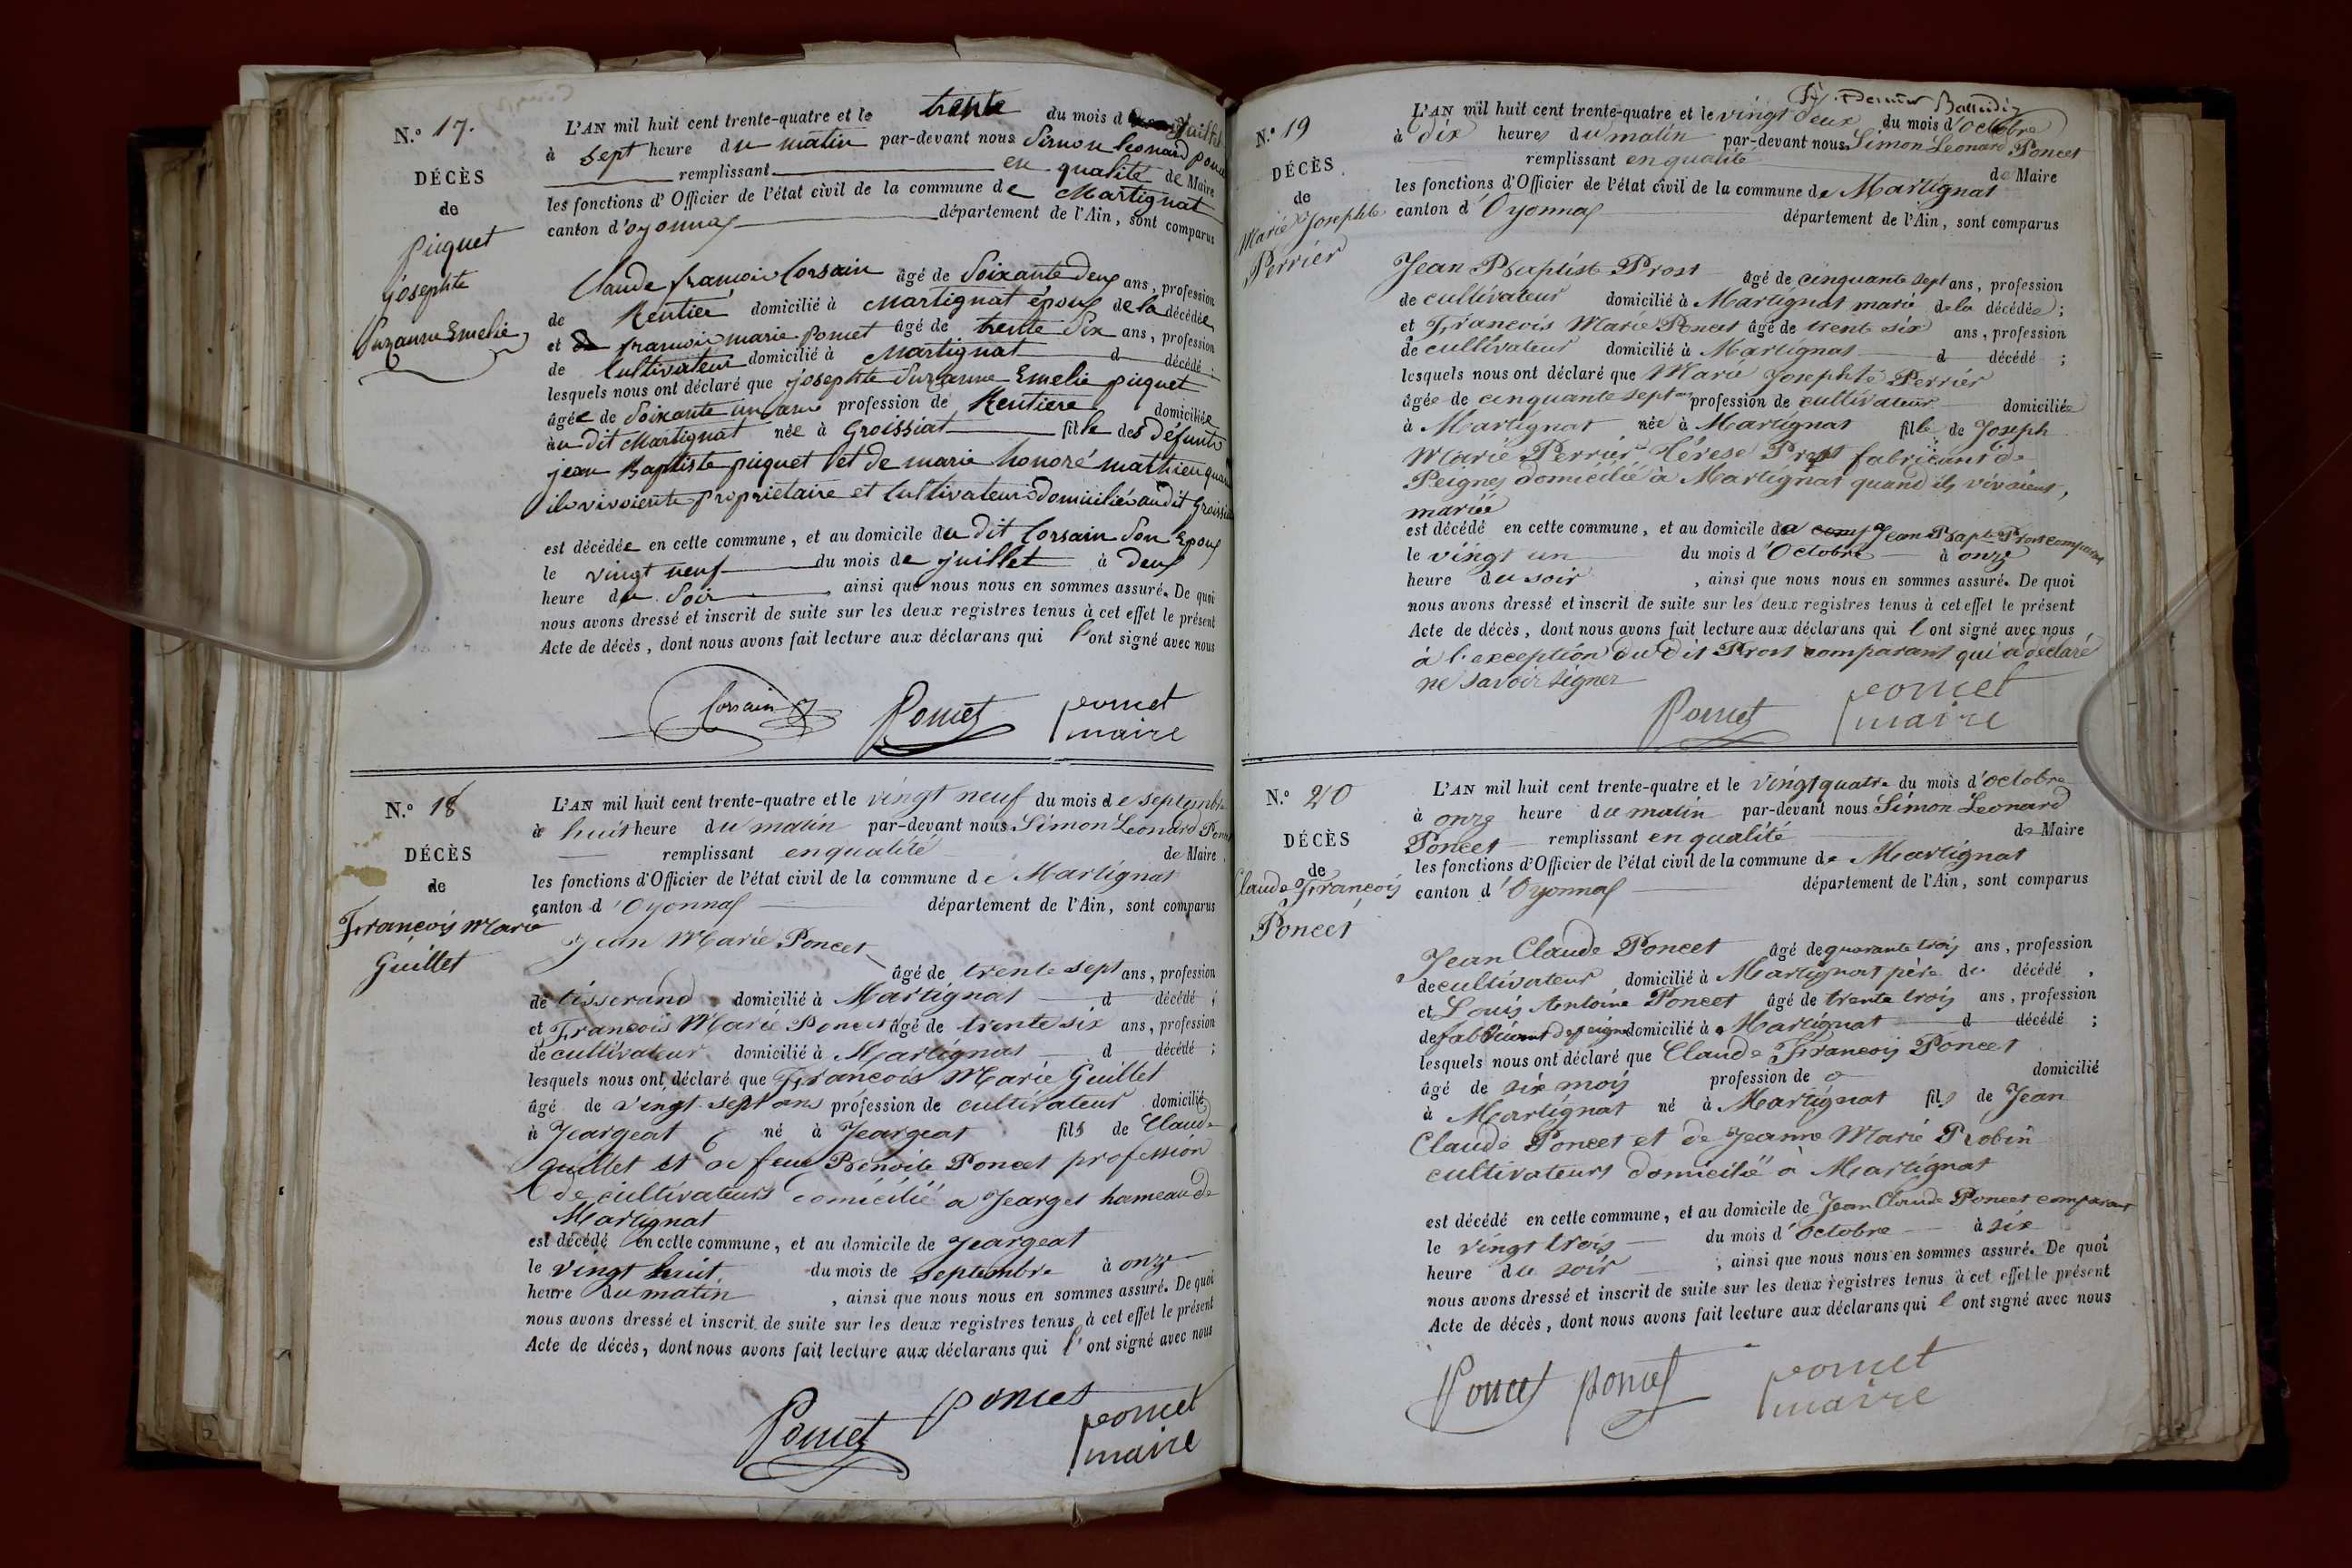 N.º 17.
DÉCÈS
de
piquet
josephte
Suzanne Emelie
L'AN mil huit cent trente-quatre et le trente du mois d Juillet
à sept heure du matin par-devant nous Simon léonard
remplissant en qualité de Maire
les fonctions d'Officier de l'état civil de la commune de Martignat
canton d'oyonnax département de l'Ain, sont comparus
Claude francois Corsain âgé de Soixante deux ans, profession
de Rentier domicilié à Martignat époux de la décédée
et francois marie poncet âgé de trente Six ans, profession
de Cultivateur domicilié à Martignat d décédé ;
lesquels nous ont déclaré que josephte Suzanne Emelie piquet
âgée de Soixante un ans profession de Rentiere domiciliée
au dit Martignat née à Groissiat fille des défunts
jean Baptiste piquet et de marie honoré mathieu quand
ils vivoiente propriétaire et Cultivateurs domiciliés audit Groissiat
est décédée en cette commune, et au domicile du dit Corsain Son Epoux
le vingt neuf du mois de juillet à deux
heure du Soir, ainsi que nous nous en sommes assuré. De quoi
nous avons dressé et inscrit de suite sur les deux registres tenus à cet effet le présent
Acte de décès, dont nous avons fait lecture aux déclarans qui l'ont signé avec nous
Corsain Poncet poncet
maire
N.º 18
DÉCÈS
de
François Marie
Guillet
L'AN mil huit cent trente-quatre et le vingt neuf du mois de septembre
à huit heure du matin par-devant nous Simon Léonard Poncet
remplissant en qualité de Maire
les fonctions d'Officier de l'état civil de la commune de Martignat
canton d'Oyonnax département de l'Ain, sont comparus
Jean Marie Poncet
âgé de trente sept ans, profession
de tisserand domicilié à Martignat d décédé ;
et François Marie Poncet âgé de trente six ans, profession
de cultivateur domicilié à Martignat d décédé ;
lesquels nous ont déclaré que François Marie Guillet
âgé de vingt sept ans profession de cultivateur domicilié
à Jeargeat né à Jeargeat fils de Claude
guillet et de feue Benoite Poncet profession
de cultivateurs domicilié a Jearget hameau de
Martignat
est décédé en cette commune, et au domicile de Jeargeat
le vingt huit du mois de septembre à onze
heure du matin, ainsi que nous nous en sommes assuré. De quoi
nous avons dressé et inscrit de suite sur les deux registres tenus à cet effet le présent
Acte de décès, dont nous avons fait lecture aux déclarans qui l'ont signé avec nous
Poncet poncet poncet
maire
N.º 19
DÉCÈS
de
Marie Josephte
Perrier
L'AN mil huit cent trente-quatre et le vingt deux du mois d'Octobre
à dix heures du matin par-devant nous Simon Léonard Poncet
remplissant en qualité de Maire
les fonctions d'Officier de l'état civil de la commune de Martignat
canton d'Oyonnax département de l'Ain, sont comparus
Jean Baptiste Prost âgé de cinquante sept ans, profession
de cultivateur domicilié à Martignat marie de la décédée ;
et François Marie Poncet âgé de trente six ans, profession
de cultivateur domicilié à Martignat d décédé ;
lesquels nous ont déclaré que Marie Josephte Perrier
âgée de cinquante sept ans profession de cultivateur domiciliée
à Martignat née à Martignat fille de Joseph
Marie Perrier Térese Prost fabricant de
Peignes domicilié à Martignat quand ils vivaient,
mariée
est décédé en cette commune, et au domicile de Jean Bapte Prost comparant
le vingt un du mois d'Octobre à onze
heure du soir, ainsi que nous nous en sommes assuré. De quoi
nous avons dressé et inscrit de suite sur les deux registres tenus à cet effet le présent
Acte de décès, dont nous avons fait lecture aux déclarans qui l ont signé avec nous,
à l'exception du dit Prost comparant qui a déclaré
ne savoir signer
Poncet poncet
maire
N.º 20
DÉCÈS
de
Claude François
Poncet
L'AN mil huit cent trente-quatre et le vingt quatre du mois d'octobre
à onze heure du matin par-devant nous Simon Léonard
Poncet remplissant en qualité de Maire
les fonctions d'Officier de l'état civil de la commune de Martignat
canton d'Oyonnax département de l'Ain, sont comparus
Jean Claude Poncet âgé de quarante trois ans, profession
de cultivateur domicilié à Martignat père du décédé,
et Louis Antoine Poncet âgé de trente trois ans, profession
de fabricant de peigne domicilié à Martignat d décédé ;
lesquels nous ont déclaré que Claude François Poncet
âgé de six mois profession de domicilié
à Martignat né à Martignat fils de Jean
Claude Poncet et de Jeanne Marie Robin
cultivateurs domicilié à Martignat
est décédé en cette commune, et au domicile de Jean Claude Poncet comparant
le vingt trois du mois d'Octobre à six
heure du soir ; ainsi que nous nous en sommes assuré. De quoi
nous avons dressé et inscrit de suite sur les deux registres tenus à cet effet le présent
Acte de décès, dont nous avons fait lecture aux déclarans qui l ont signé avec nous
Poncet poncet poncet
maire